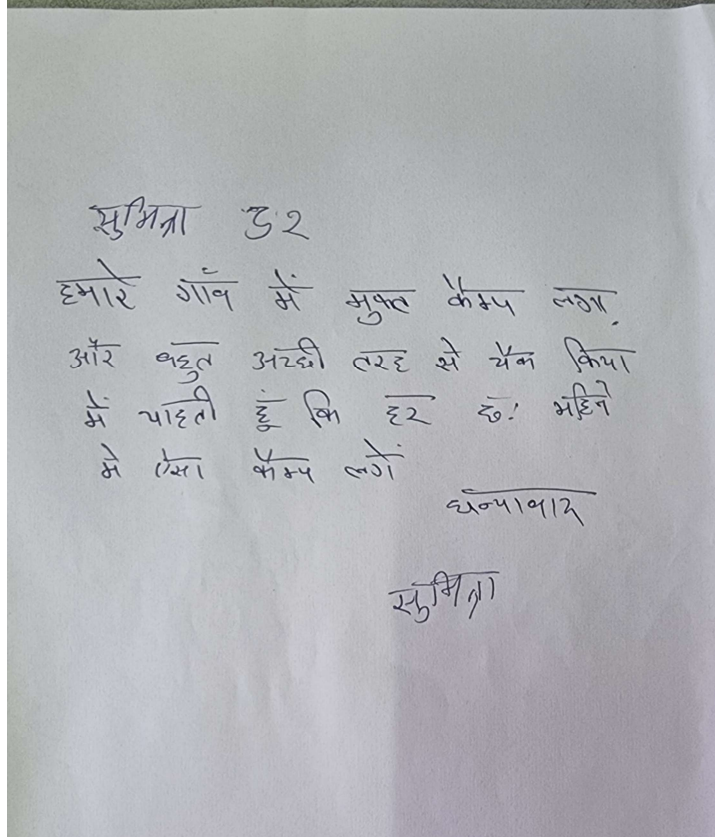 सुमित्रा 52
हमारे गाँव में मुफ्त कैम्प लगा,
और बहुत अच्छी तरह से चैक किया
में चाहती हूं कि हर छ: महिने
मे ऐसा कैम्प लगें
धन्यावाद
सुमित्रा